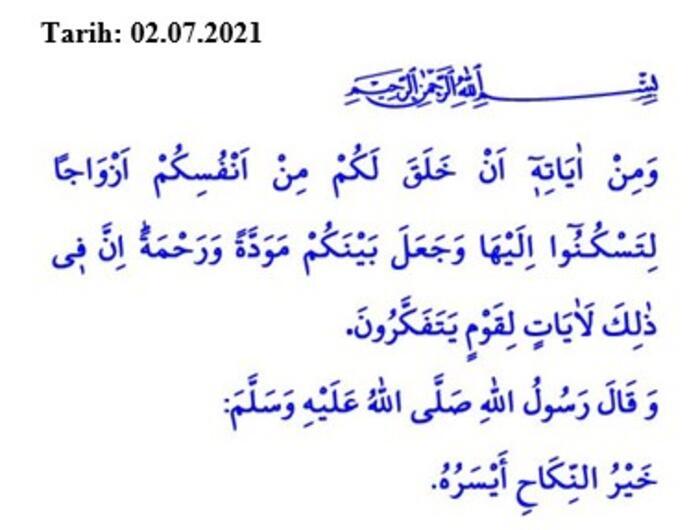 Tarih: 02.07.2021
بِسْــــــــمِ اللّٰهِ الرَّحْمٰنِ الرَّحِيمِ
وَمِنْ اٰيَاتِه۪ٓ اَنْ خَلَقَ لَكُمْ مِنْ اَنْفُسِكُمْ اَزْوَاجًا
لِتَسْكُـنُٓوا اِلَيْهَا وَجَعَلَ بَيْنَكُمْ مَوَدَّةً وَرَحْمَةًۜ اِنَّ ف۪ى
ذٰلِكَ لَاٰيَاتٍ لِقَوْمٍ يَتَفَكَّرُونَ.
وَ قَالَ رَسُولُ اللّٰهِ صَلَّى اللّٰهُ عَلَيْهِ وَسَلَّمَ:
خَيْرُ النِّكَاحِ أَيْسَرُهُ.